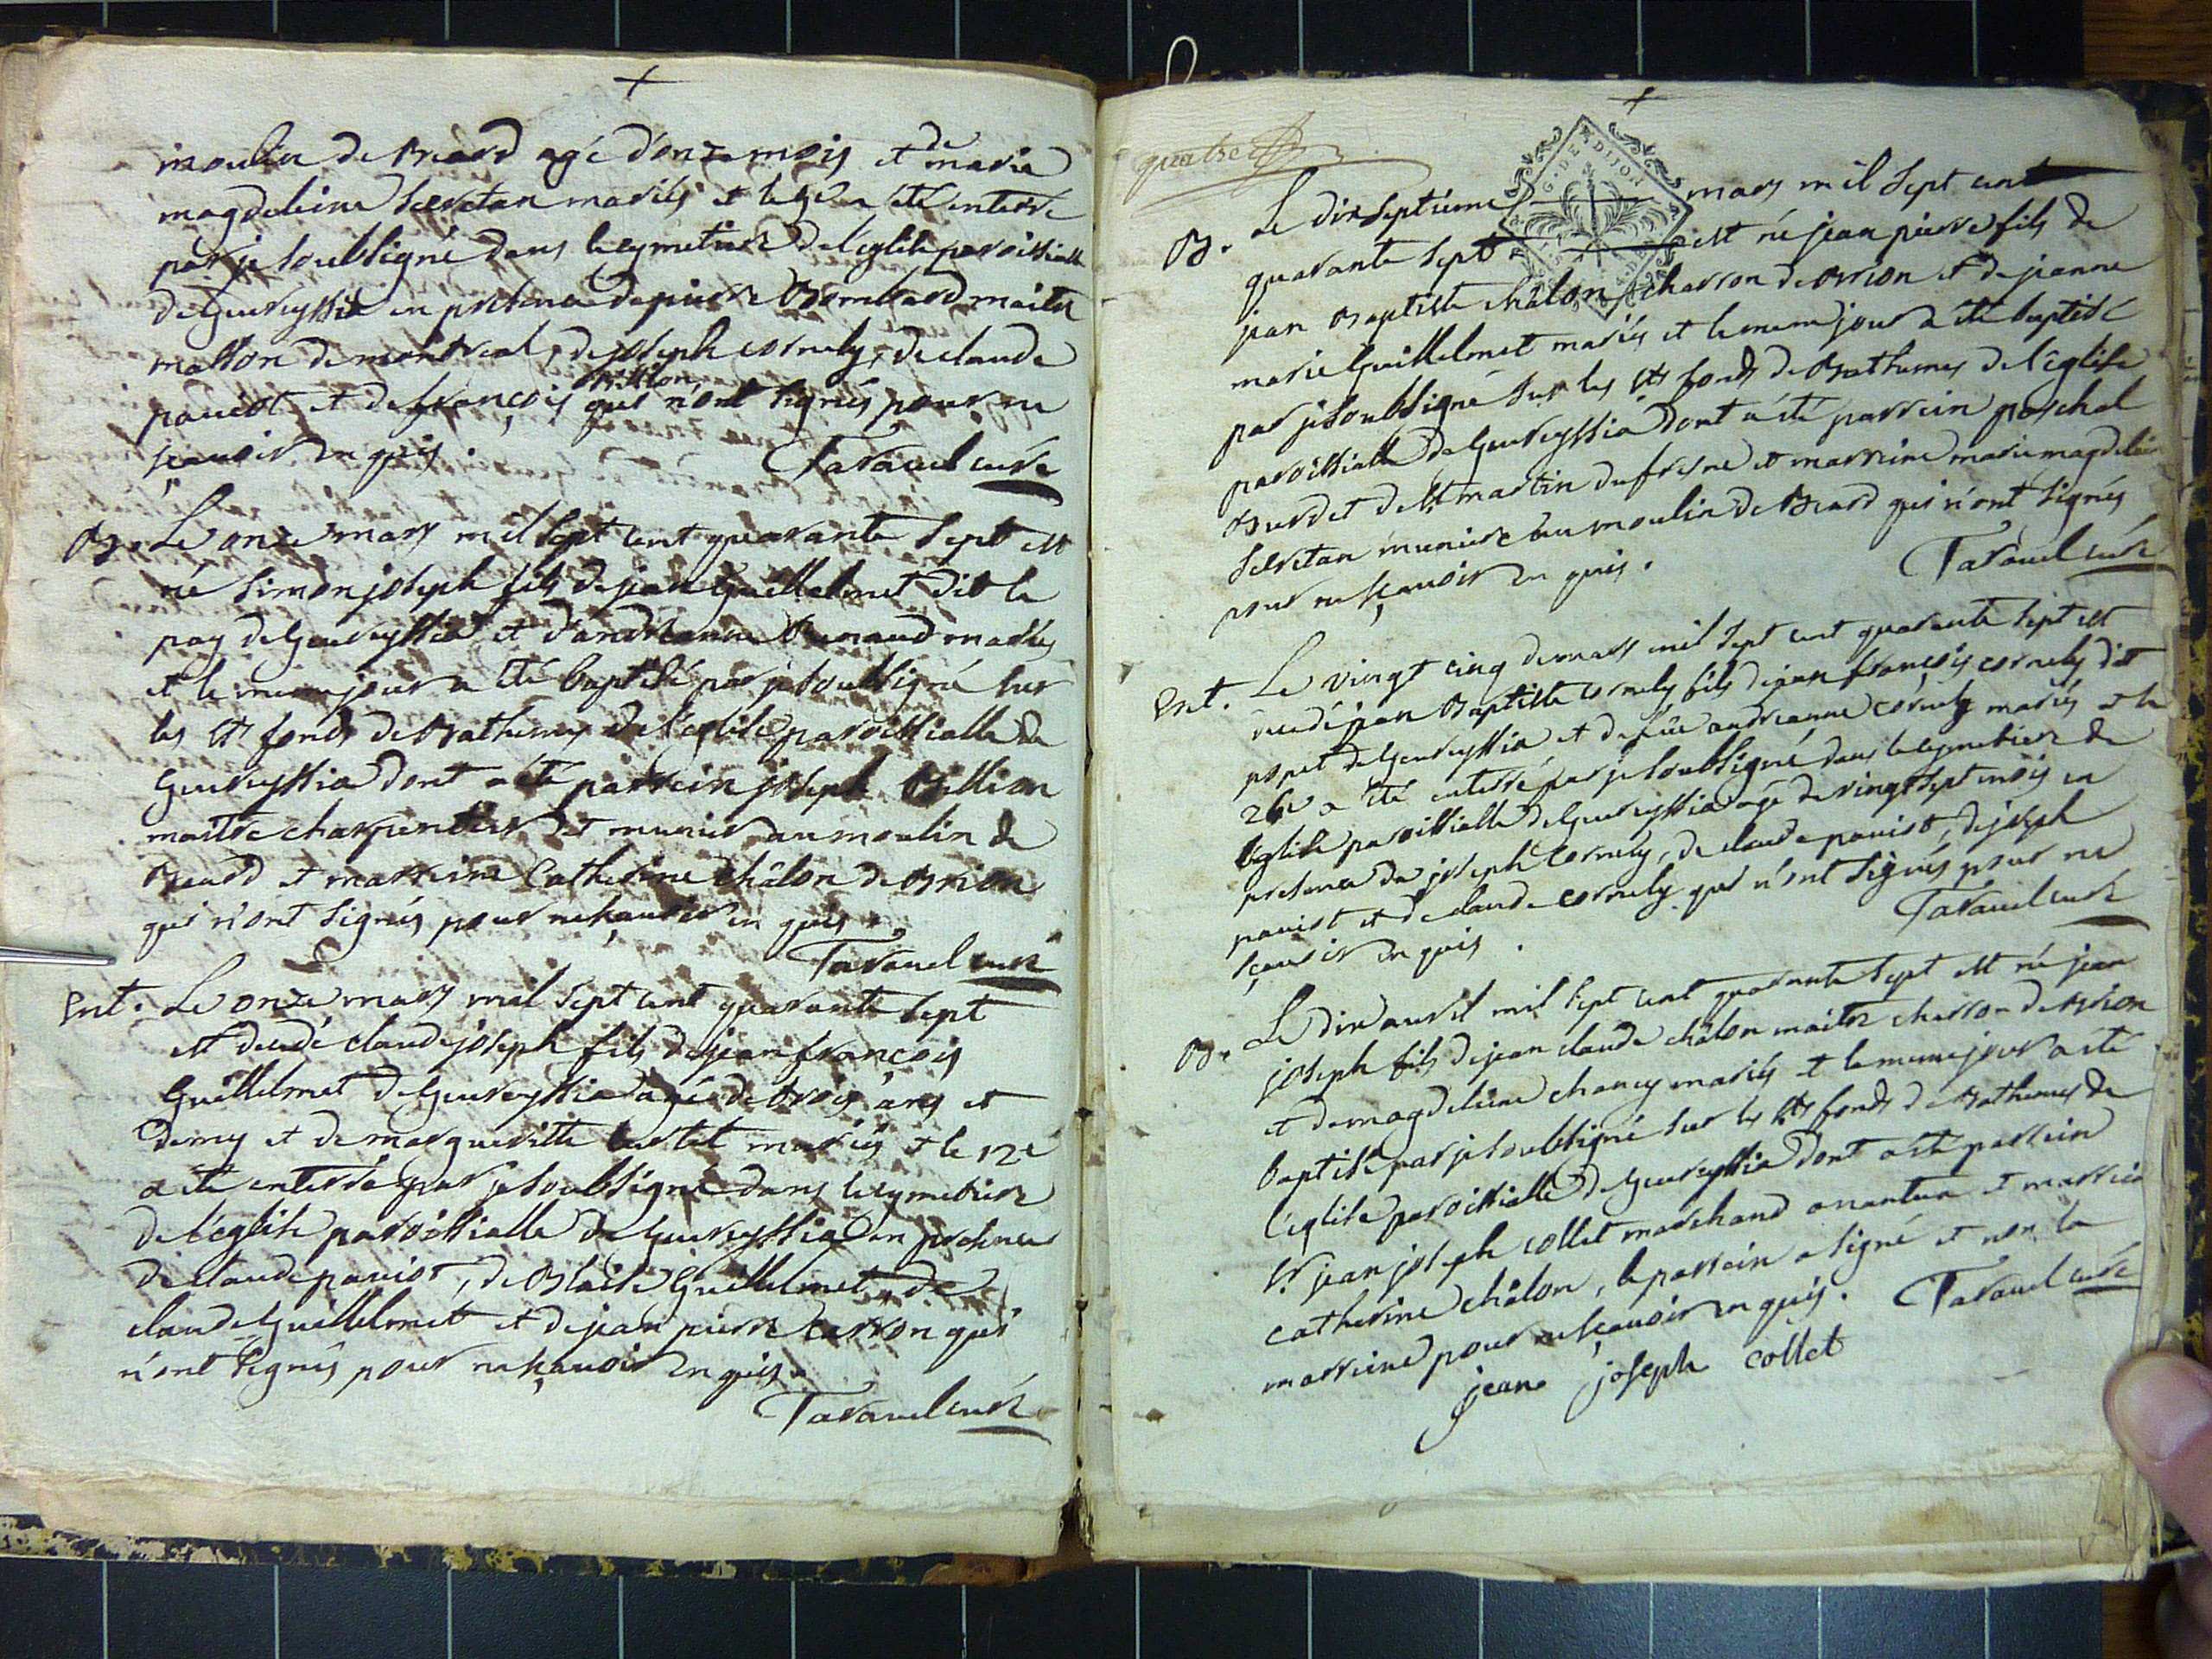 +
moulin de Beard agé d'onze mois et de marie
magdeleine Secretan mariés et le 9e a été enterré
par je soubsigné dans le cymetiere de l'eglise paroissialle
de Geureyssia en presence de pierre Bombard maitre
masson de montreal, de joseph cornely, de claude
paviot et de françois billion, qui n'ont signés pour ne
sçavoir en quis.
Taravel curé
B. Le onze mars mil sept cent quarante sept est
né simon joseph fils de jean Guillelmet dit le
pay de Geureyssia et d'andreanne Renaud mariés
et le meme jour a été baptisé par je soubsigné sur
les Sts fonds de Bathemes de l'eglise paroissialle de
Geureyssia dont a été parrein joseph Billion
maitre charpentier et munier au moulin de
Beard et marreine Catherine châlon de Brion
qui n'ont signés pour ne sçavoir en quis.
Taravel curé
Ent. Le onze mars mil sept cent quarante sept
est decedé claude joseph fils de jean françois
Guillelmet de Geureyssia agé de trois ans et
demy et de margueritte curtet mariés et le 12e
a été enterré par je soubsigné dans le cymetiere
de l'eglise paroissialle de Geureyssia en presence
de claude paviot, de Blaise Guillelmet, de
claude Guillelmet et de jean pierre carron qui
n'ont signés pour ne sçavoir en quis.
Taravel curé
+
quatre
G. DE DIJON
B. Le dix septieme mars mil sept cent
quarante sept est né jean pierre fils de
jean Baptiste châlon charron de Brion et de jeanne
marie Guillelmet mariés et le meme jour a été baptisé
par je soubsigné sur les Sts fonds de Bathemes de l'église
paroissialle de Geureyssia dont a été parrein paschal
Burdet de St martin du fresne et marreine marie magdeleine
Secretan muniere au moulin de Beard qui n'ont signés
pour ne sçavoir en quis.
Taravel curé
Ent. Le vingt cinq de mars mil sept cent quarante sept est
decedé jean Baptiste cornely fils de jean françois cornely dit
popet de Geureyssia et de füe andreanne cornely mariés et le
26e a été enterré par je soubsigné dans le cymetiere de
l'eglise paroissialle de Geureyssia agé de vingt sept mois en
presence de joseph cornely, de claude paviot, de joseph
paviot et de claude cornely qui n'ont signés pour ne
sçavoir en quis.
Taravel curé
B. Le dix avril mil sept cent quarante sept est né jean
joseph fils de jean claude châlon maitre charron de Brion
et de magdeleine chaney mariés et le meme jour a été
baptisé par je soubsigné sur les Sts fonds de Bathemes de
l'eglise paroissialle de Geureyssia dont a été parrein
Sr. jean joseph collet marchand a nantua et marreine
catherine châlon, le parrein a signé et non la
marreine pour ne sçavoir en quis.
Taravel curé
jean joseph collet